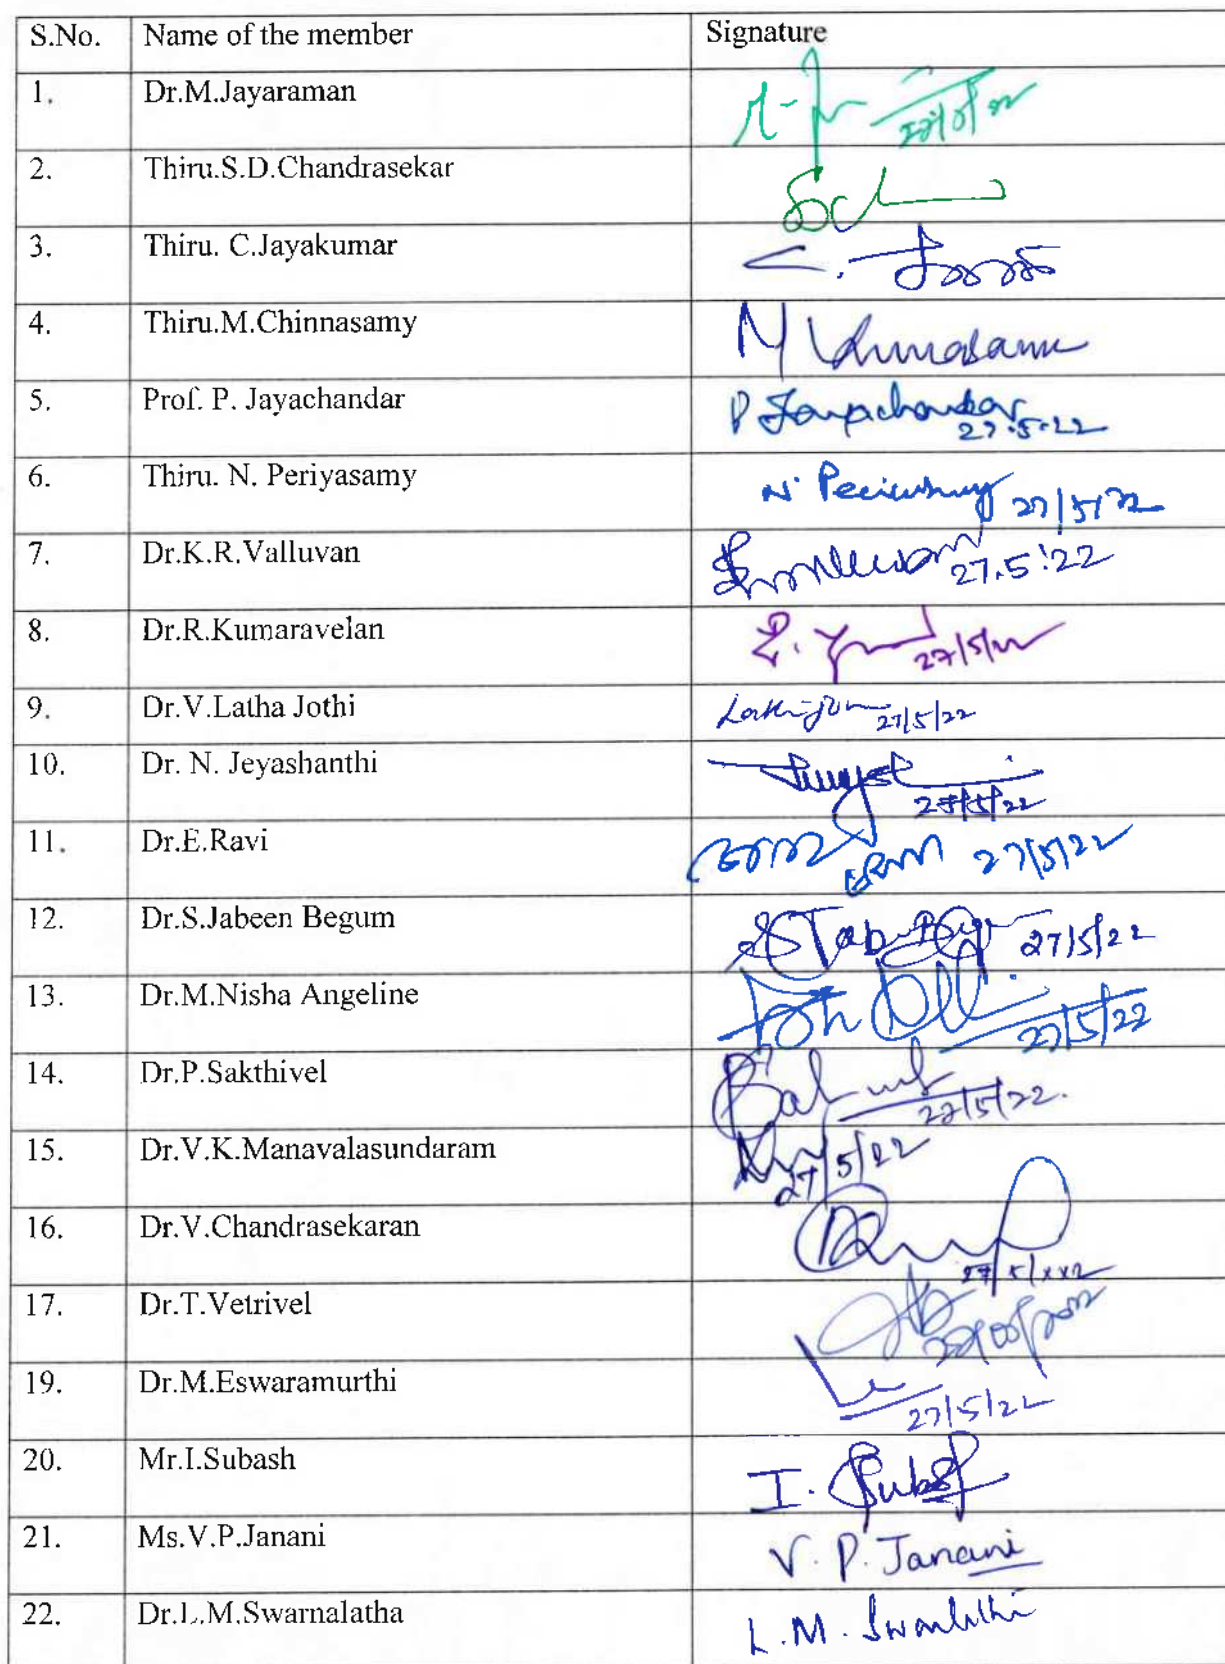 S.No. Name of the member Signature
1. Dr.M.Jayaraman
2. Thiru.S.D.Chandrasekar
3. Thiru. C.Jayakumar
4. Thiru.M.Chinnasamy M
5. Prof. P. Jayachandar P Jayachandar
27.5.22
6. Thiru. N. Periyasamy N. 27/5/22
7. Dr.K.R.Valluvan 27.5.22
8. Dr.R.Kumaravelan 27/5/22
9. Dr.V.Latha Jothi 27/5/22
10. Dr. N. Jeyashanthi
27/5/22
11. Dr.E.Ravi 27/5/22
12. Dr.S.Jabeen Begum 27/5/22
13. Dr.M.Nisha Angeline
27/5/22
14. Dr.P.Sakthivel
27/5/22.
15. Dr.V.K.Manavalasundaram
27/5/22
16. Dr.V.Chandrasekaran
17. Dr.T.Vetrivel
19. Dr.M.Eswaramurthi
27/5/22
20. Mr.I.Subash I. Subash
21. Ms.V.P.Janani V. P. Janani
22. Dr.L.M.Swarnalatha L.M.